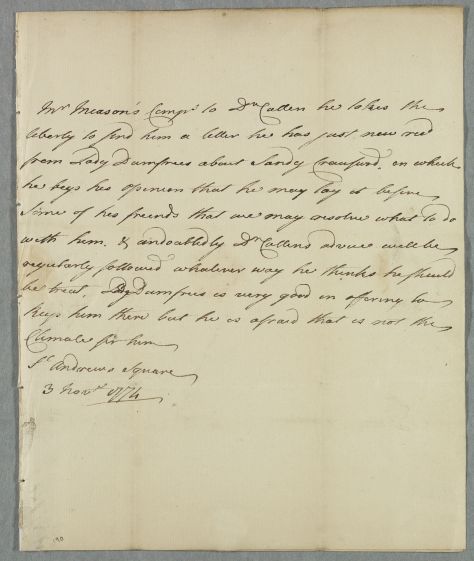 Mr Meason's Compts to Dr Cullen he takes the
liberty to send him a letter he has just now recd
from Lady Dumfries about Sandy Craufurd, on which
he begs his opinion that he may lay it before
some of his freinds that we may resolve what to do
with him. & undoubtedly Dr Cullens advice will be
regularly followed whatever way he thinks he should
be treat. Ly Dumfries is very good in offering to
keep him there but he is afraid that is not the
Climate for him
St Andrews Square
3 Novr 1774
190